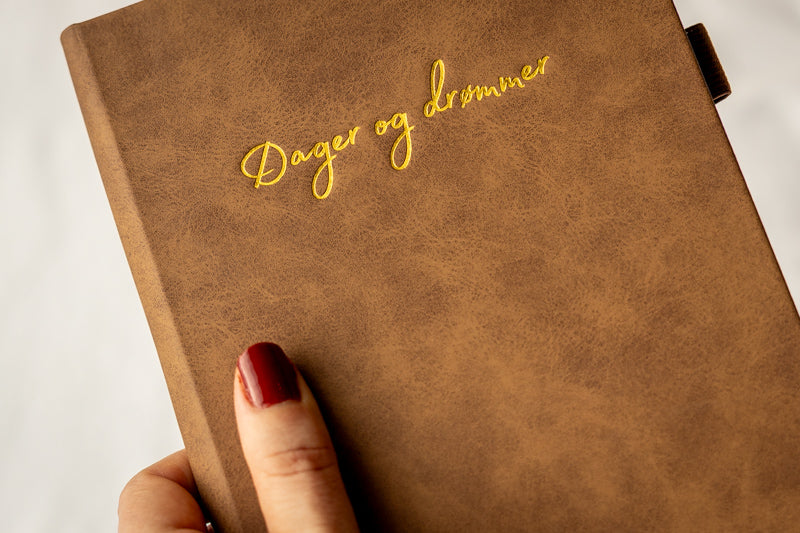 Dager og drømmer